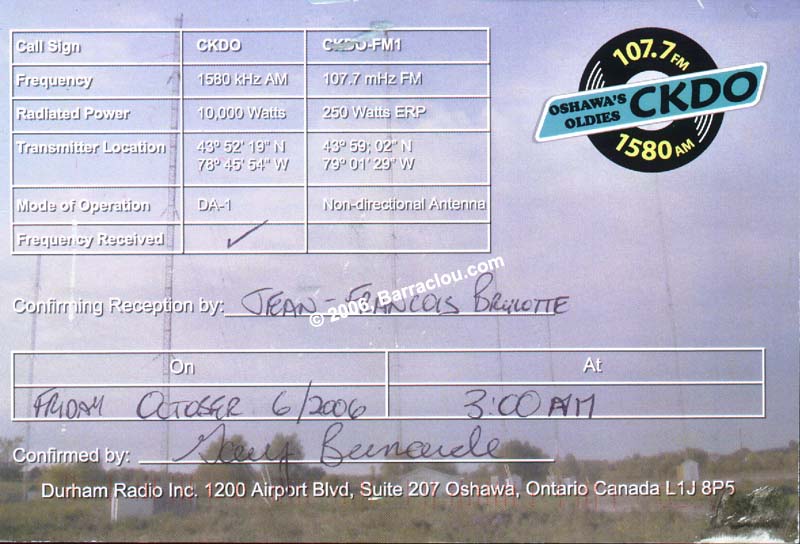 107.7 FM
OSHAWA'S OLDIES CKDO
1580 AM
Call Sign CKDO CKDO-FM1
Frequency 1580 kHz AM 107.7 mHz FM
Radiated Power 10,000 Watts 250 Watts ERP
Transmitter Location 43º 52' 19" N 43º 59; 02" N
78º 45' 54" W 79º 01' 29" W
Mode of Operation DA-1 Non-directional Antenna
Frequency Received ✓
Confirming Reception by: JEAN-FRANCOIS BRULOTTE
© 2006, Barraclou.com
On At
FRIDAY OCTOBER 6/2006 3:00 AM
Confirmed by:
Durham Radio Inc. 1200 Airport Blvd, Suite 207 Oshawa, Ontario Canada L1J 8P5